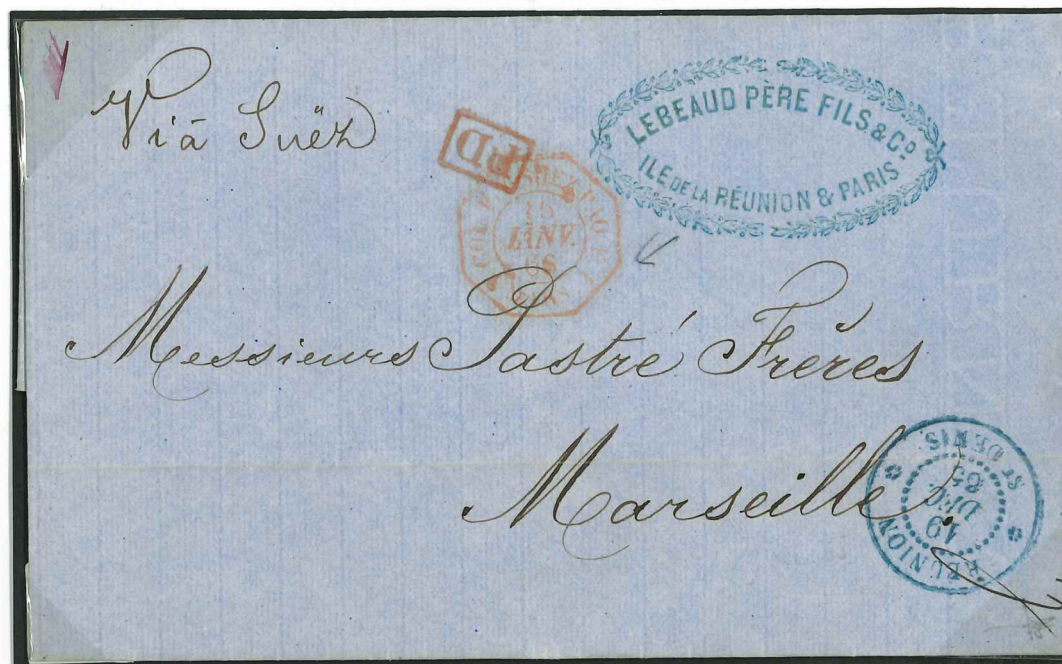 Viā Suëz
PD
LEBEAUD PÈRE FILS & Cº
ILE DE LA RÉUNION & PARIS
15
JANV.
Messieurs Pastré Frères
Marseille.
RÉUNION
19
DÉC.
65
ST DENIS